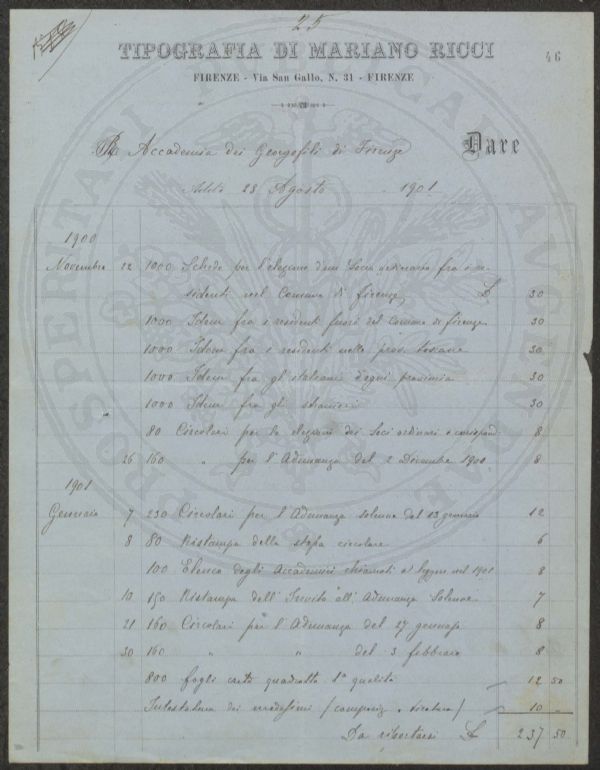 25
46
TIPOGRAFIA DI MARIANO RICCI
FIRENZE - Via San Gallo, N. 31 - FIRENZE
R. Accademia dei Georgofili di Firenze
Dare
Addì 28 Agosto 1901
1900
Novembre 22 1000 Schede per l'elezione d'un Socio ordinario fra i re-
sidenti nel Comune di Firenze £ 30
1000 Idem fra i residenti fuori del Comune di Firenze 30
1000 Idem fra i residenti nelle prov. toscane 30
1000 Idem fra gl'italiani d'ogni provincia 30
1000 Idem fra gli stranieri 30
80 Circolari per le elezioni dei Soci ordinari e corrispond. 8
26 160 " per l'Adunanza del 2 Dicembre 1900 8
1901
Gennaio 7 230 Circolari per l'Adunanza solenne del 13 gennaio 12
8 80 Ristampa della stessa circolare 6
100 Elenco degli Accademici chiamati a leggere nel 1901 8
10 150 Ristampa dell'Invito all'Adunanza Solenne 7
21 160 Circolari per l'Adunanza del 27 gennaio 8
30 160 " " del 3 febbraio 8
800 fogli carta quadrotta 1ª qualità 12 50
Intestatura dei medesimi (composiz. e tiratura) 10 -
Da riportarsi £ 237 50